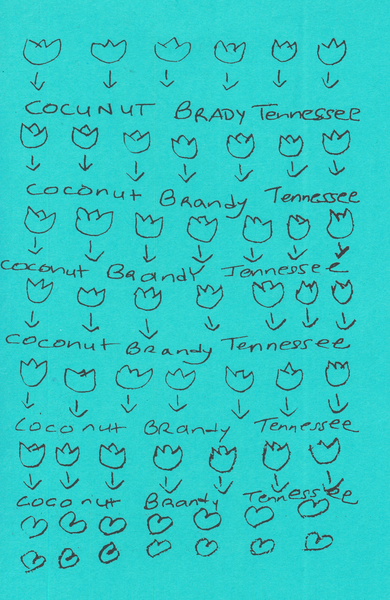 COCUNUT BRADY Tennessee
Coconut Brandy Tennessee
coconut Brandy Tennessee
Coconut Brandy Tennessee
Coconut Brandy Tennessee
Coconut Brandy Tennessee